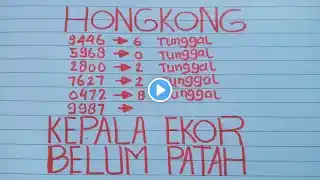 HONGKONG
9446 → 6 Tunggal
5969 → 0 Tunggal
2800 → 2 Tunggal
7627 → 2 Tunggal
0472 → 8 Tunggal
9987 →
KEPALA EKOR
BELUM PATAH